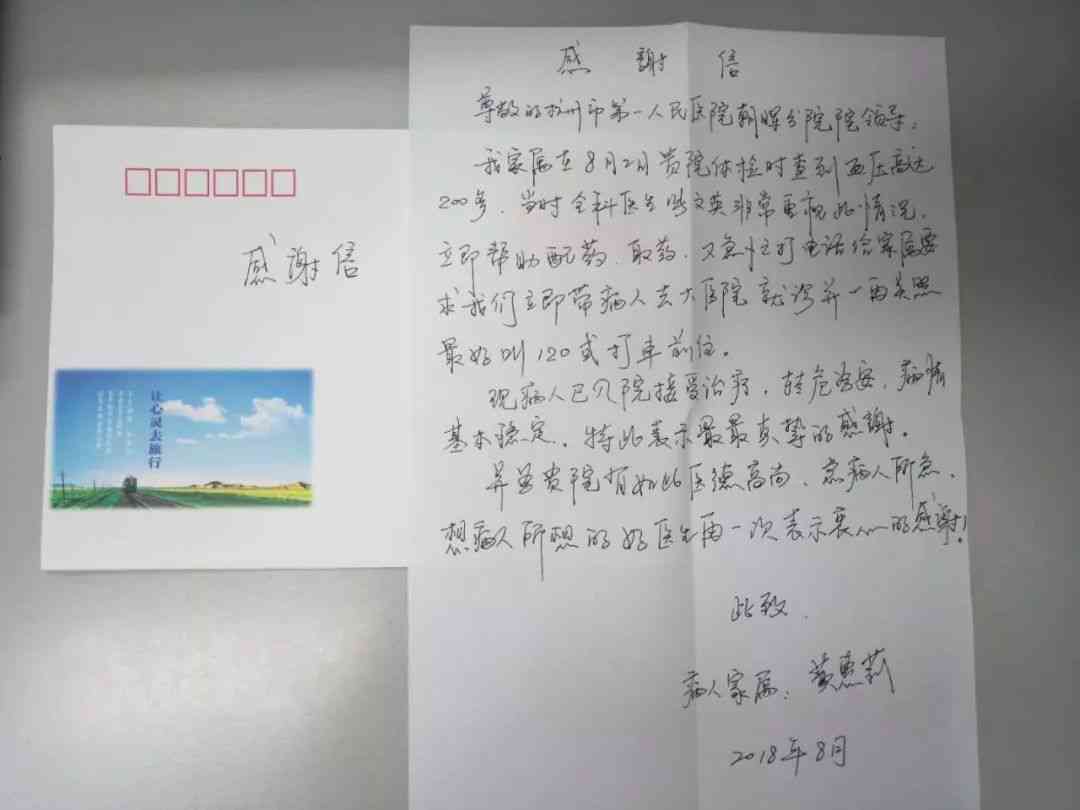 感谢信
让心灵去旅行
感 謝 信
尊敬的杭州市第一人民医院朝晖分院院领导:
我家属在8月2日贵院体检时查到血压高达
200多,当时全科医生 文英非常重视此情况,
立即帮助配药、取药,又急忙打电话给家属要
求我们立即带病人去大医院就诊并一再关照
最好叫120或打车前往。
现病人已入院接受治疗,转危为安,病情
基本稳定,特此表示最最真挚的感謝。
并对贵院有如此医德高尚、急病人所急、
想病人所想的好医生再一次表示衷心的感谢!
此致
病人家属:黄惠莉
2018年8月